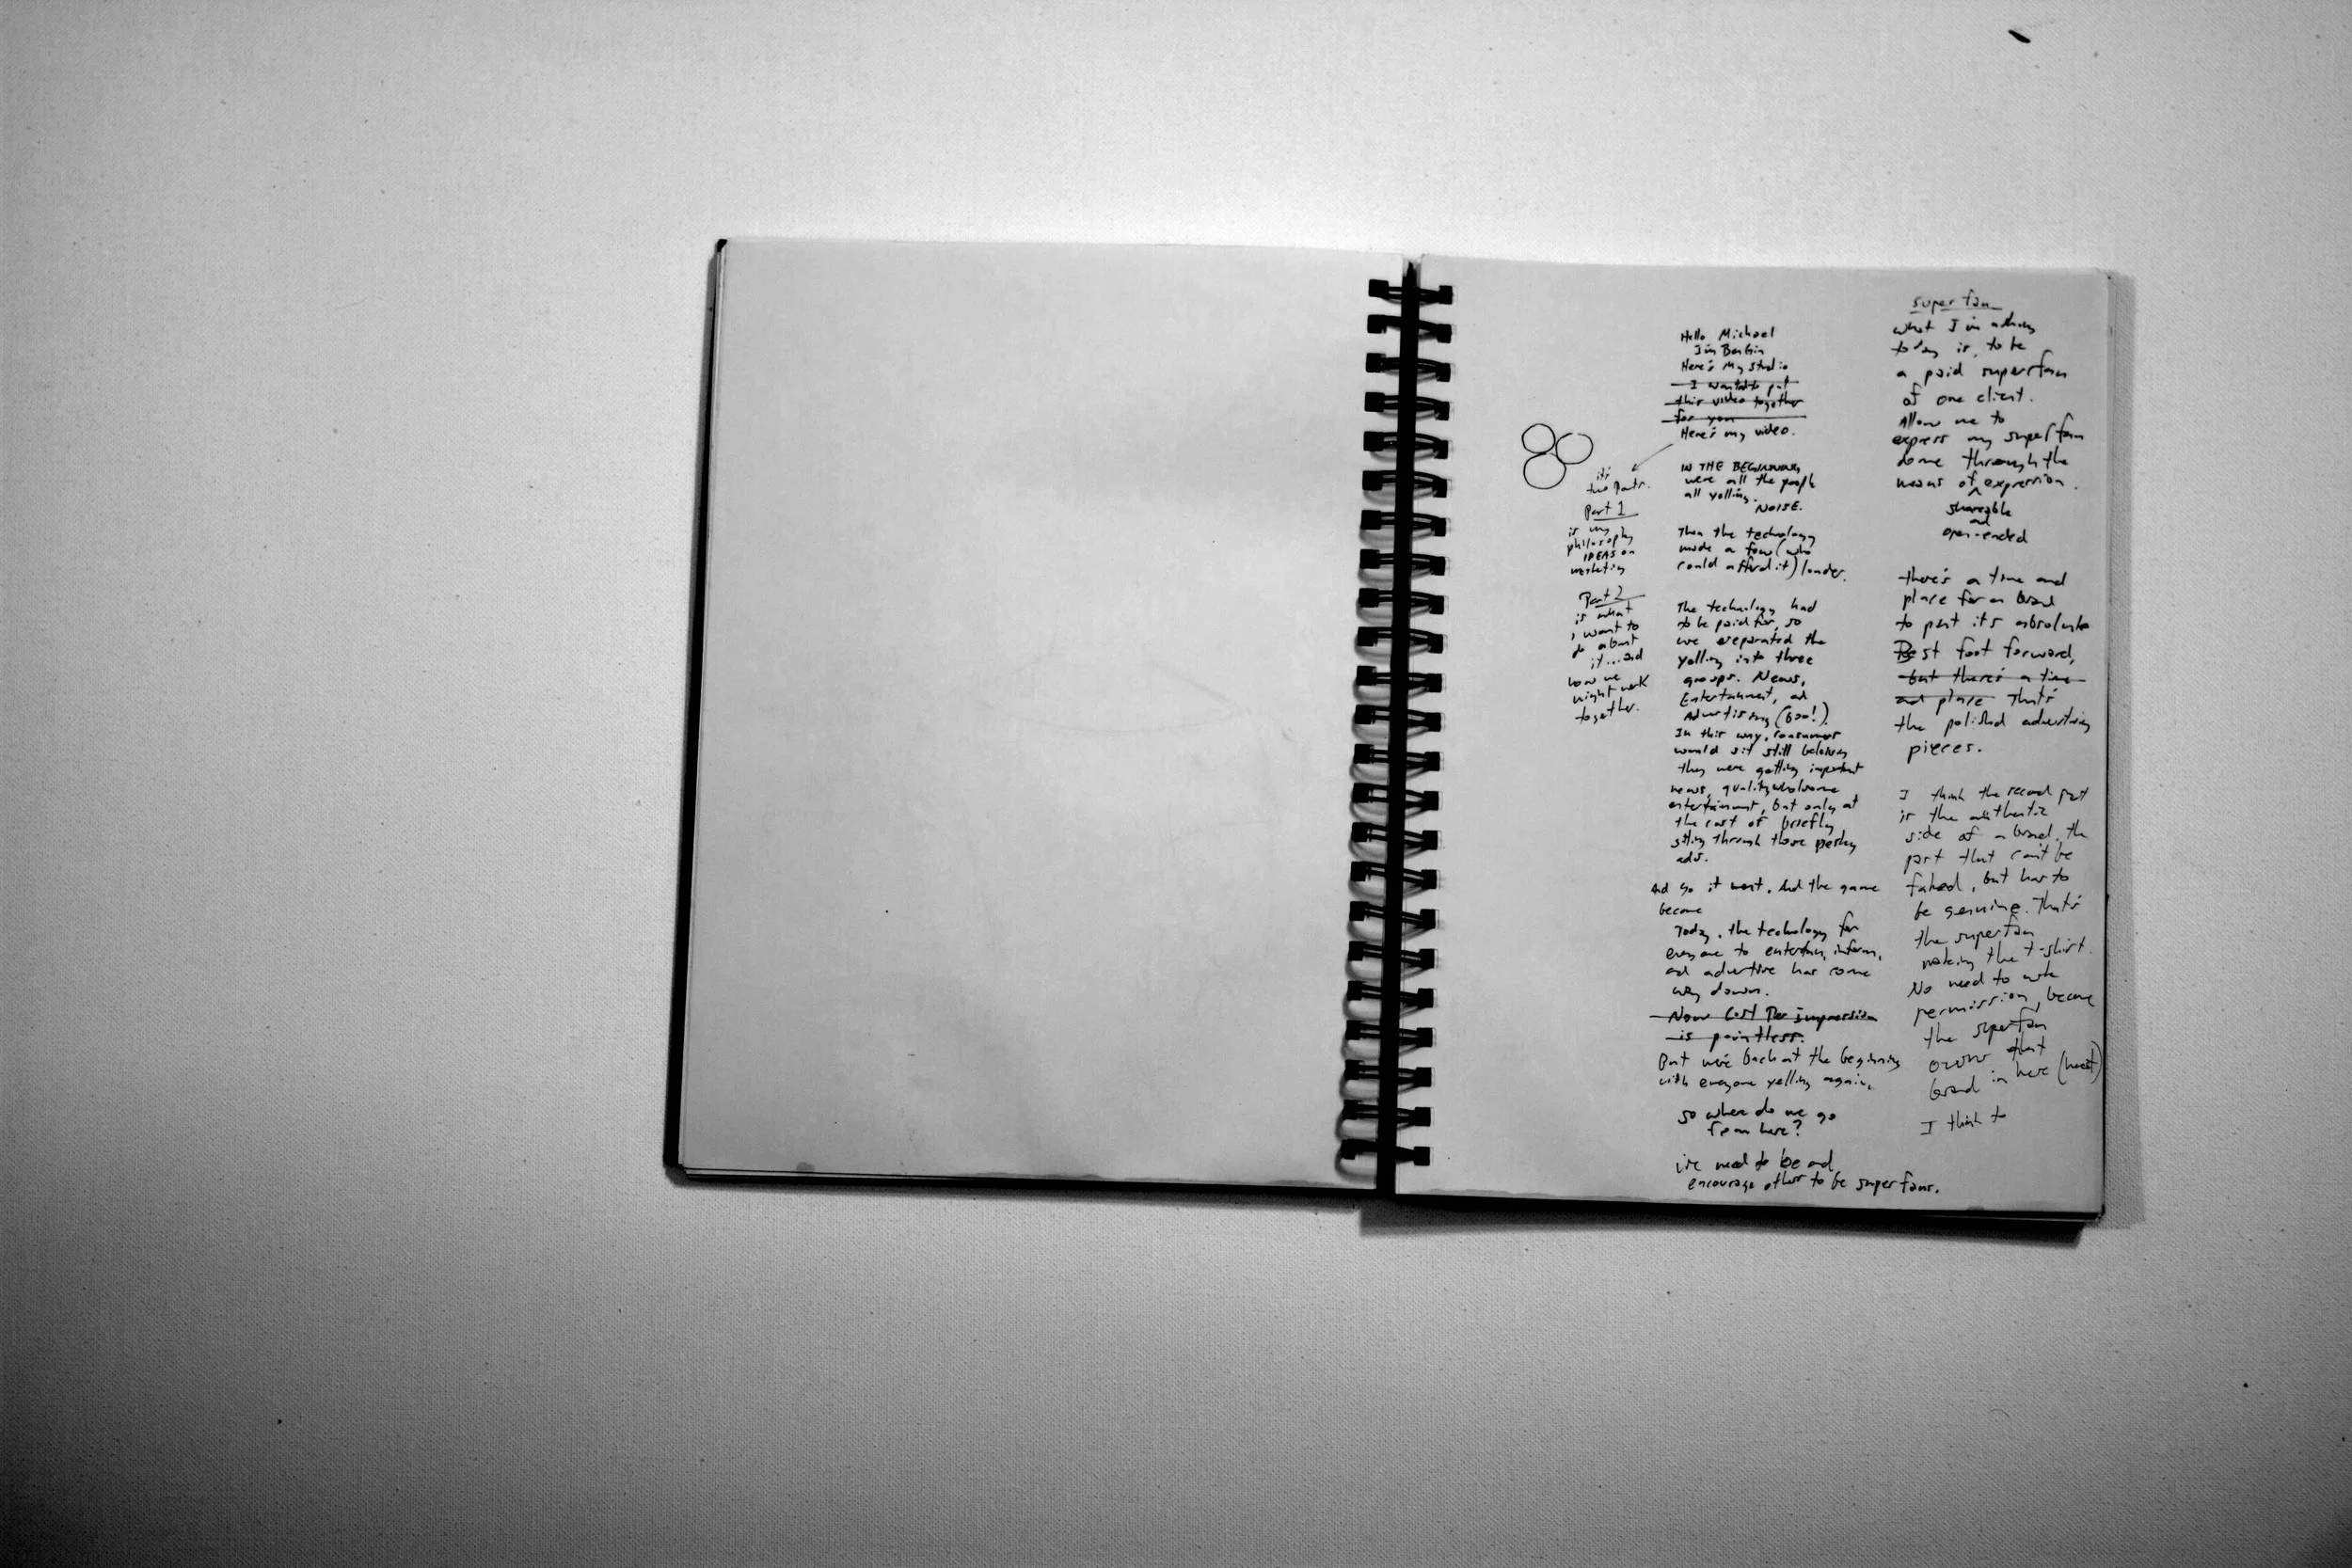 Hello Michael
I'm
Here's my studio
I wanted to put
this video together
for you
Here's my video.
it's
two parts.
Part 1
is my
philosophy
IDEAS on
marketing
Part 2
is what
I want to
do about
it...and
how we
might work
together.
IN THE BEGINNING
were all the people
all yelling.
NOISE.
Then the technology
made a few (who
could afford it) louder.
The technology had
to be paid for, so
we separated the
yelling into three
groups. News,
Entertainment, and
Advertising (boo!).
In this way, consumers
would sit still believing
they were getting important
news, quality wholesome
entertainment, but only at
the cost of briefly
sitting through those pesky
ads.
And so it went. And the game
became
Today, the technology for
everyone to entertain, inform,
and advertise has come
way down.
Now Cost Per impression
is pointless.
But we're back at the beginning
with everyone yelling again.
so where do we go
from here?
we need to be and
encourage others to be superfans.
superfan
what I'm asking
today is, to be
a paid superfan
of one client.
Allow me to
express my superfan
dome through the
means of expression.
shareable
and
open-ended
there's a time and
place for a brand
to put it's absolute
Best foot forward,
but there's a time
and place that's
the polished advertising
pieces.
I think the second part
is the authentic
side of a brand, the
part that can't be
faked, but has to
be genuine. That's
the superfan
making the t-shirt.
No need to
permission, because
the superfan
owns that
brand in here (heart)
I think to